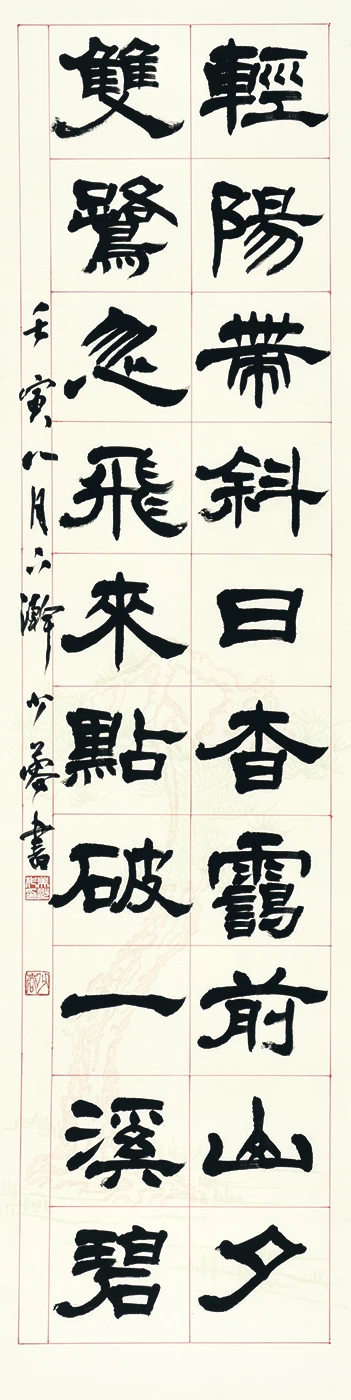 輕陽帶斜日杳靄前山夕
雙鷺忽飛來點破一溪碧
壬寅八月下澣少書